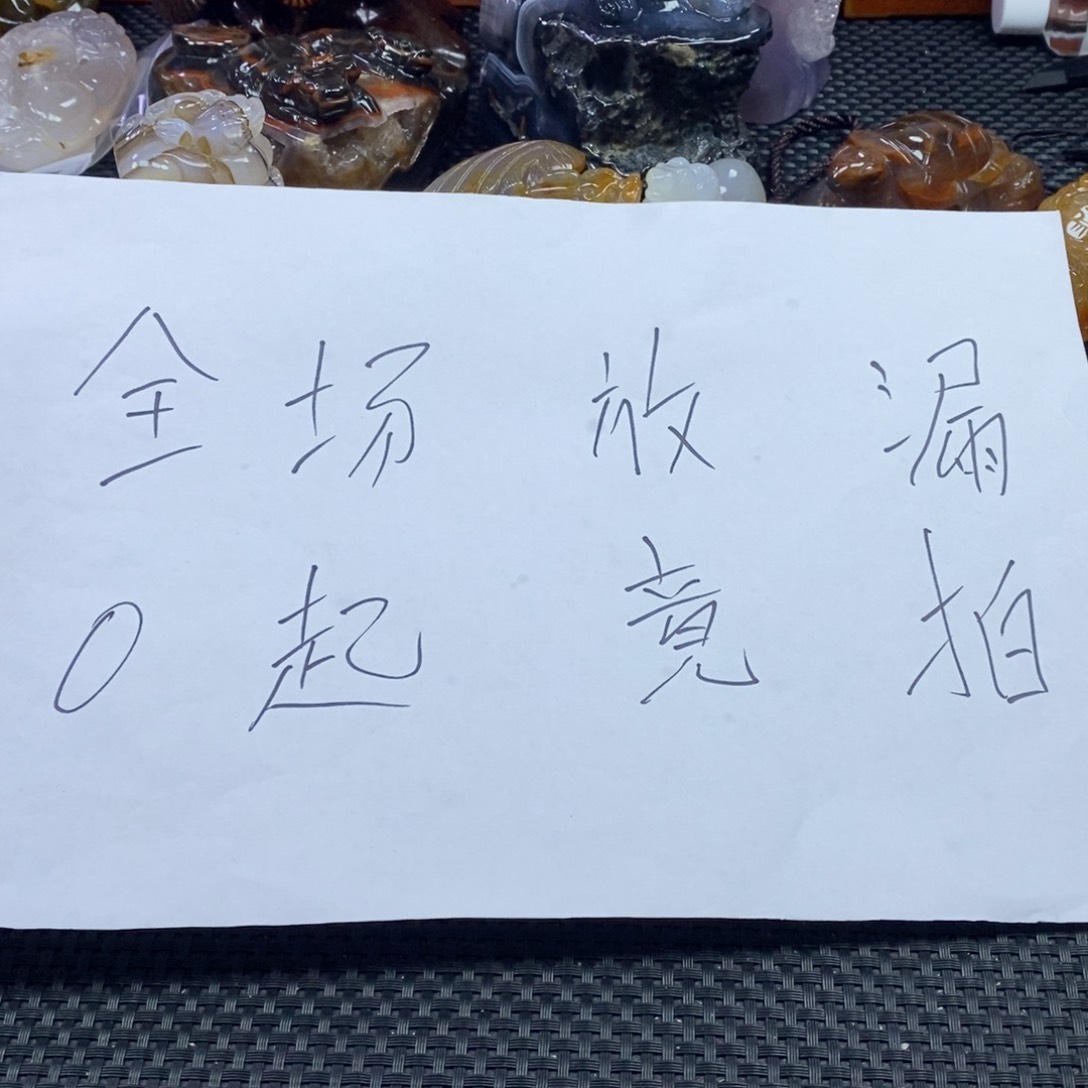 全场放漏
0起竞拍